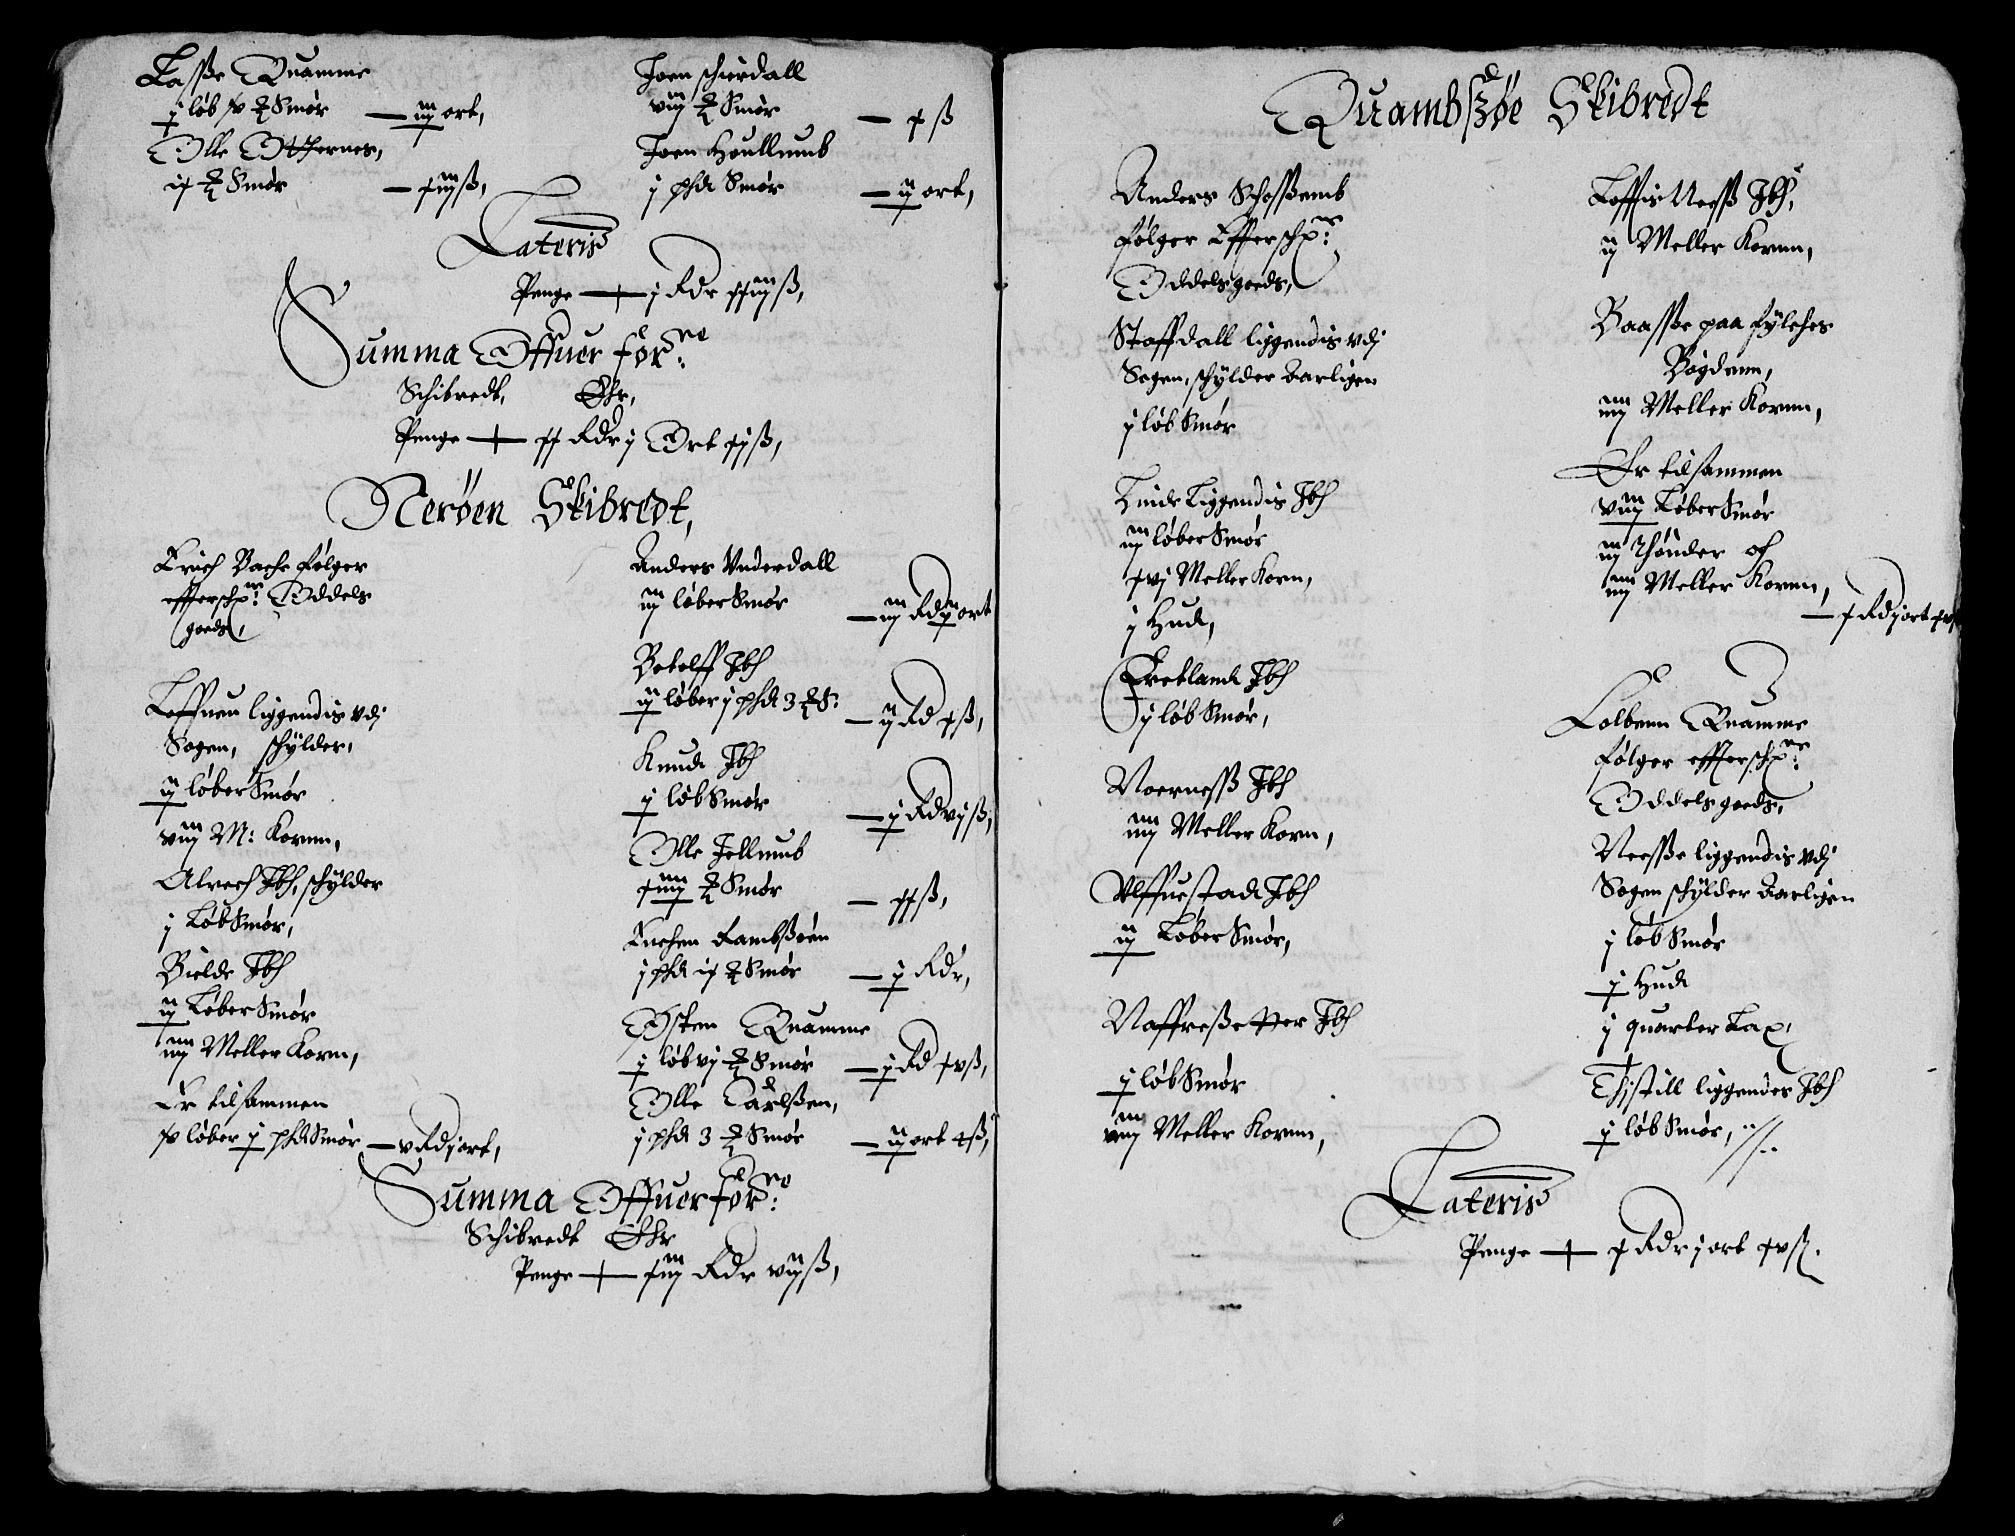 Lasse Quamme
j løb xv ℔ Smør — iij ort,
Olle Otthernes,
ix ℔ Smør — xiiij ß,
Joen schierdall
viij ℔ Smør — x ß
Joen Houllumb
j phd Smør — ij ort,
Lateris
Penge — j Rdr xxiiij ß,
Summa Offuer for:ne
Schibredt, Ehr,
Penge — xx Rdr j Ort xij ß,
Nerøen Skibredt,
Erich Bache følger
effterschr:ne Oddels
goeds,
Loffuen liggendis vdj
Sogen, schylder,
ij løber Smør
viij M: Kornn,
Alrech Jbh, schylder
j Løb Smør,
Bielde Jbh
ij Løber Smør
iiij Meller Korn,
Er tilsammen
xv løber j phd Smør — v Rd j ort,
Anders Vnderdall
iij løber Smør — iij Rd ij ort
Betelff Jbh
ij løber j phd 3 ℔ S: — ij Rd x ß,
Knud Jbh
j løb Smør — j Rd vj ß,
Olle Jellumb
xiiij ℔ Smør — xx ß,
Enchen Rambsøen
j phd ix ℔ Smør — j Rdr,
Østen Quamme
j løb vj ℔ Smør — j Rd xv ß,
Olle Carlsen,
j phd 3 ℔ Smør — ij ort 4 ß,
Summa Offuer for:ne
Schibredt Ehr
Penge — xiiij Rdr vij ß,
Quambsøe Skibredt
Anders Schosemb
følger Effterschr:ne
Oddels goeds,
Stoffdall liggendis vdj
Sogen, schylder Aarligen
j løb Smør
Linde Liggendis Jbh
iij løber Smør
xvj Meller Korn,
j Hud,
Fretland Jbh
j løb Smør,
Noerness Jbh
iiij Meller Korn,
Vlffuestad Jbh
ij Løber Smør,
Naffresetter Jbh
j løb Smør
viij Meller Kornn,
Loffis Neess Jbh,
ij Meller Kornn,
Baasse paa fylches
Bøgdenn,
iiij Meller Kornn,
Er tilsammen
viij Løber Smør
iij Thønder och
iiij Meller Kornn,
— x Rd j ort xv ß
Colbenn Quamme
følger effterschr:ne
Oddels goeds,
Neesse liggendis vdj
Sogen schylder Aarligen
j løb Smør
j Hud
j quarter Lax,
Thistill liggendes Jbh
j løb Smør,
Lateris
Penge — x Rdr j ort xv ß.